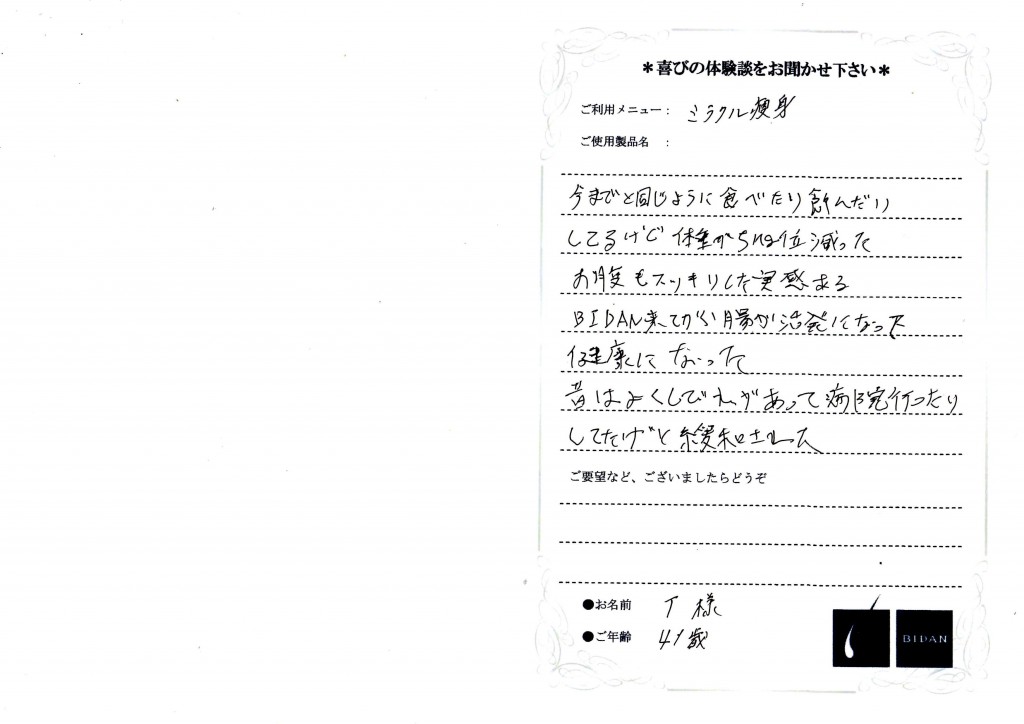 ＊喜びの体験談をお聞かせ下さい＊
ご利用メニュー： ミラクル痩身
ご使用製品名 ：
今までと同じように食べたり飲んだり
してるけど体重が5kg位減った
お腹もスッキリした実感ある
BIDAN来てから腸が活発になった
健康になった
昔はよくしびれがあって病院行ったり
してたけど緩和された
ご要望など、ございましたらどうぞ
●お名前 T様
●ご年齢 41歳
BIDAN